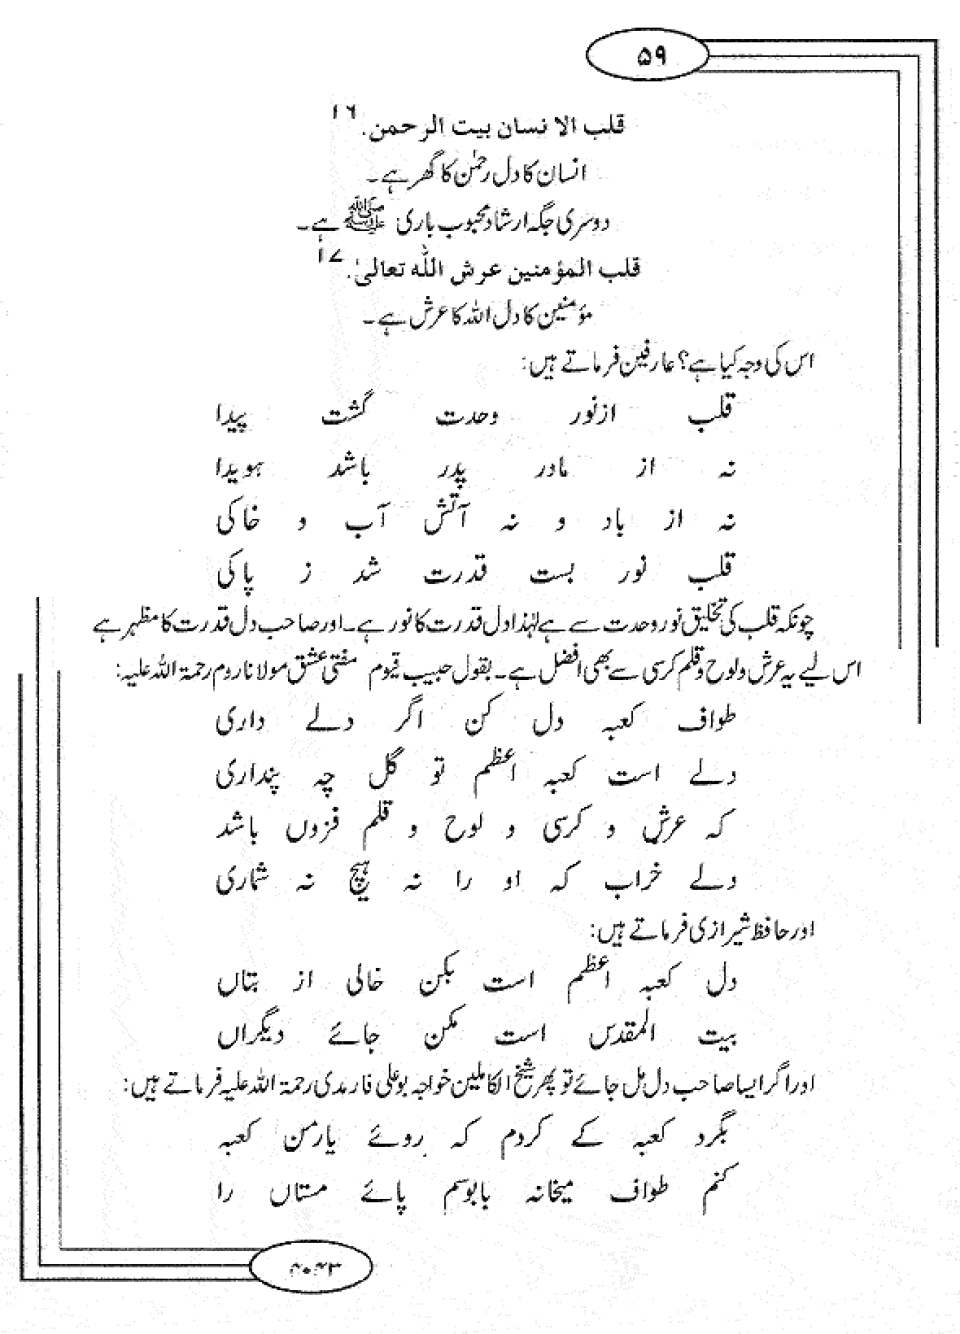 ۵۹
قلب الا نسان بیت الرحمن. ۱۶
انسان کا دل رحمٰن کا گھر ہے۔
دوسری جگہ ارشاد محبوب باری ﷺ ہے۔
قلب المؤمنین عرش اللّٰه تعالیٰ. ۱۷
مؤمنین کا دل اللہ کا عرش ہے۔
اس کی وجہ کیا ہے؟ عارفین فرماتے ہیں:
قلب ازنور وحدت گشت پیدا
نہ از مادر پدر باشد ہویدا
نہ از باد و نہ آتش آب و خاکی
قلب نور بست قدرت شد ز پاکی
چونکہ قلب کی تخلیق نور وحدت سے ہے لہٰذا دل قدرت کا نور ہے۔ اور صاحب دل قدرت کا مظہر ہے
اس لیے یہ عرش و لوح و قلم کرسی سے بھی افضل ہے۔ بقول حبیب قیوم مفتی عشق مولانا روم رحمۃ اللہ علیہ:
طواف کعبہ دل کن اگر دلے داری
دلے است کعبہ اعظم تو گل چہ پنداری
کہ عرش و کرسی و لوح و قلم فزوں باشد
دلے خراب کہ او را نہ ہیچ نہ شماری
اور حافظ شیرازی فرماتے ہیں:
دل کعبہ اعظم است بکن خالی از بتاں
بیت المقدس است مکن جائے دیگراں
اور اگر ایسا صاحب دل مل جائے تو پھر شیخ الکاملین خواجہ بوعلی فارمدی رحمۃ اللہ علیہ فرماتے ہیں:
بگرد کعبہ کے گردم کہ روئے یارمن کعبہ
کنم طواف میخانہ بابوسم پائے مستاں را